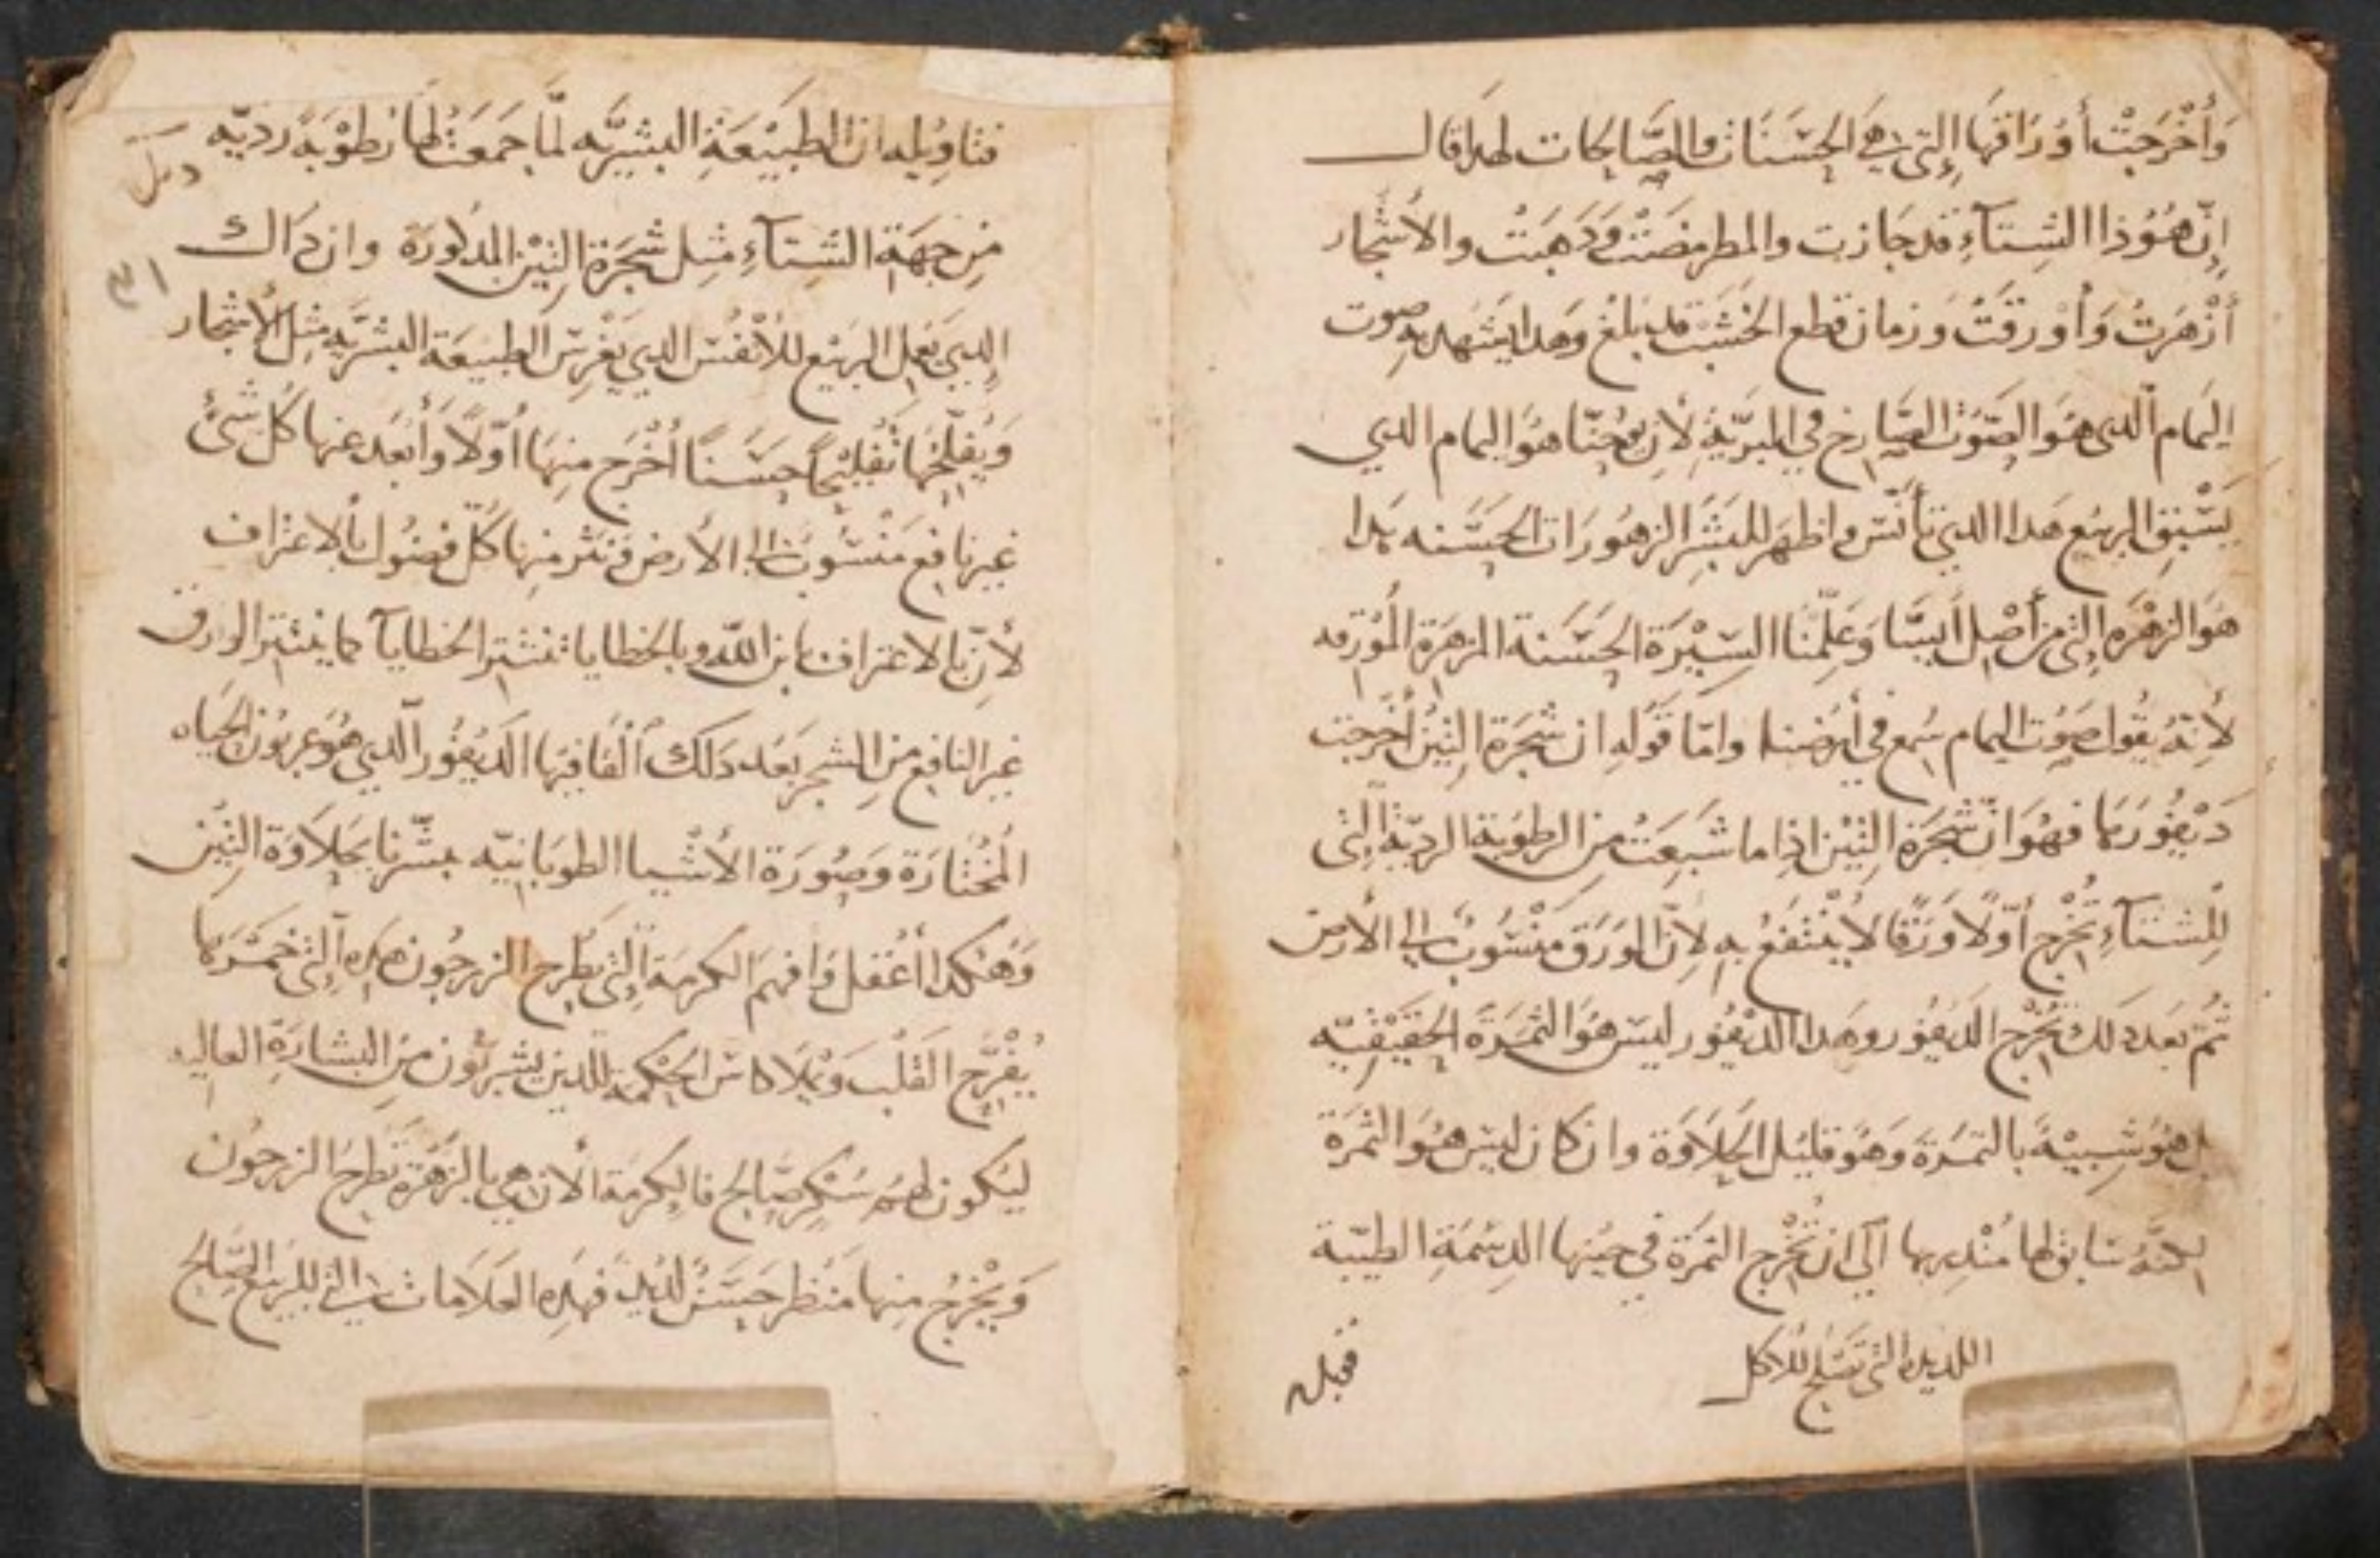 وَأَخْرَجَتْ أَوْرَاقَهَا الَّتِي هِيَ الحَسَنَات والصَّالحات لهدا قال
إنّ هُوَذا الشِتآءِ قد جَازت والمطر مضَتْ وَدَهَبَتْ والأشجار
أزْهَرتْ وَأوْرقَتْ وزمان قطع الخشب قد بَلغ وهدا يشهد به صوت
اليَمام الدى هوَ الصَّوْت الصَّارخ في البرَّيّةِ لأن يوحنّا هوَ اليمام الدي
يَسْبِق الربيع هَدا الدي تأنّس واظهر للبَشَر الزهُورَات الحسَنه هَدا
هوَ الزهْرَه التي من أصْل أيسَّا وَعَلّمنَا السِيْرَة الحَسَنة المزهرَة المُوْرقه
لأنهُ يقول صَوْت اليمام سُمع في أرضنا وامّا قَوْلهِ ان شجَرَة التِيْن أخرَجَت
دَيْفُورَهَا فهُوَ انّ شجَرَة التِيْن ادا ما شَبِعَتْ من الرطوبة الرديّة الّتى
للشتآءِ تُخْرج أوّلاً وَرَقًا لا يُنْتفَعُ به لأنّ الوَرَق منْسُوبٌ الى الأرض
ثمّ بَعد دَلك تُخْرج الدَيفُور وهَدا الديْفور ليس هوَ الثمَرَة الحَقيْقيّه
بل هوَ شبِيْهٌ بالتمرَة وَهوَ قليْل الحَلاَوَة وان كان ليسَ هوَ الثمرَة
لكنّهُ سابق لها مُنْدر بها الَى ان تُخْرج الثمَرَة في حيْنها الدسمَةِ الطيّبة
اللديده التى تصْلح للأكل
فتاوِيْله ان الطبَيْعَةِ البشريَّه لمّا جَمعَتْ لها رطوْبَة رديّه
مِن جهَةِ الشِتآءِ مثِل شجَرَة التِيْن المدكورَة وان داك
الدِي يَعمل الربيع للأنْفُس الدي يَغْرس الطبيعَة البشَريّه مثِل الأشجار
وَيُفلّحْهَا تَفْليْحاً حسَنًا أخْرَج منهَا أوّلاً وَأبْعَد عنها كُل شئ
غير نافع مَنْسُوب الى الأرض وَنثر منها كُلّ فضُول بالاعتراف
لأنّ بالاعتراف بابن اللّه وبالخطايا تنتثر الخطايآ كما ينتثر الوارق
غير النافع من الشجر بَعْد دَلك ألقا فيها الدَيْفُور الّدي هوَ عربُون الحَياه
المُخْتارَة وَصُورَة الأشْيا الطوبَانيّه بشّرنا بحَلاَوَة التِيْن
وَهَكدا أعْقل وَافهم الكرمَة التِى تطرح الزرجُون هدِه التى خمْرهَا
يُفْرّح القَلْب وَيْملا كاس الحكمة للدين يشربُون من البشارَةِ العاليه
ليَكون لهم سُكرٌ صَالح فالكرمَة الأن هي بالزهْرة تطرح الزرجُون
وَيْخْرجُ منها مَنْظر حسَنٌ لديد فهدِه العلاَمات التى للربيع الصَّالح